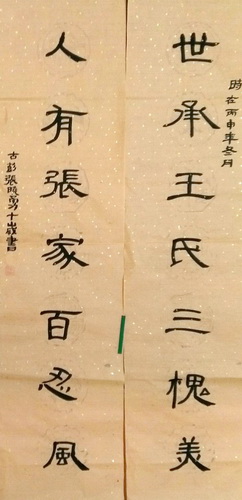 時在丙申年冬月
世承王氏三槐美
人有張家百忍風
古彭張 十歲書